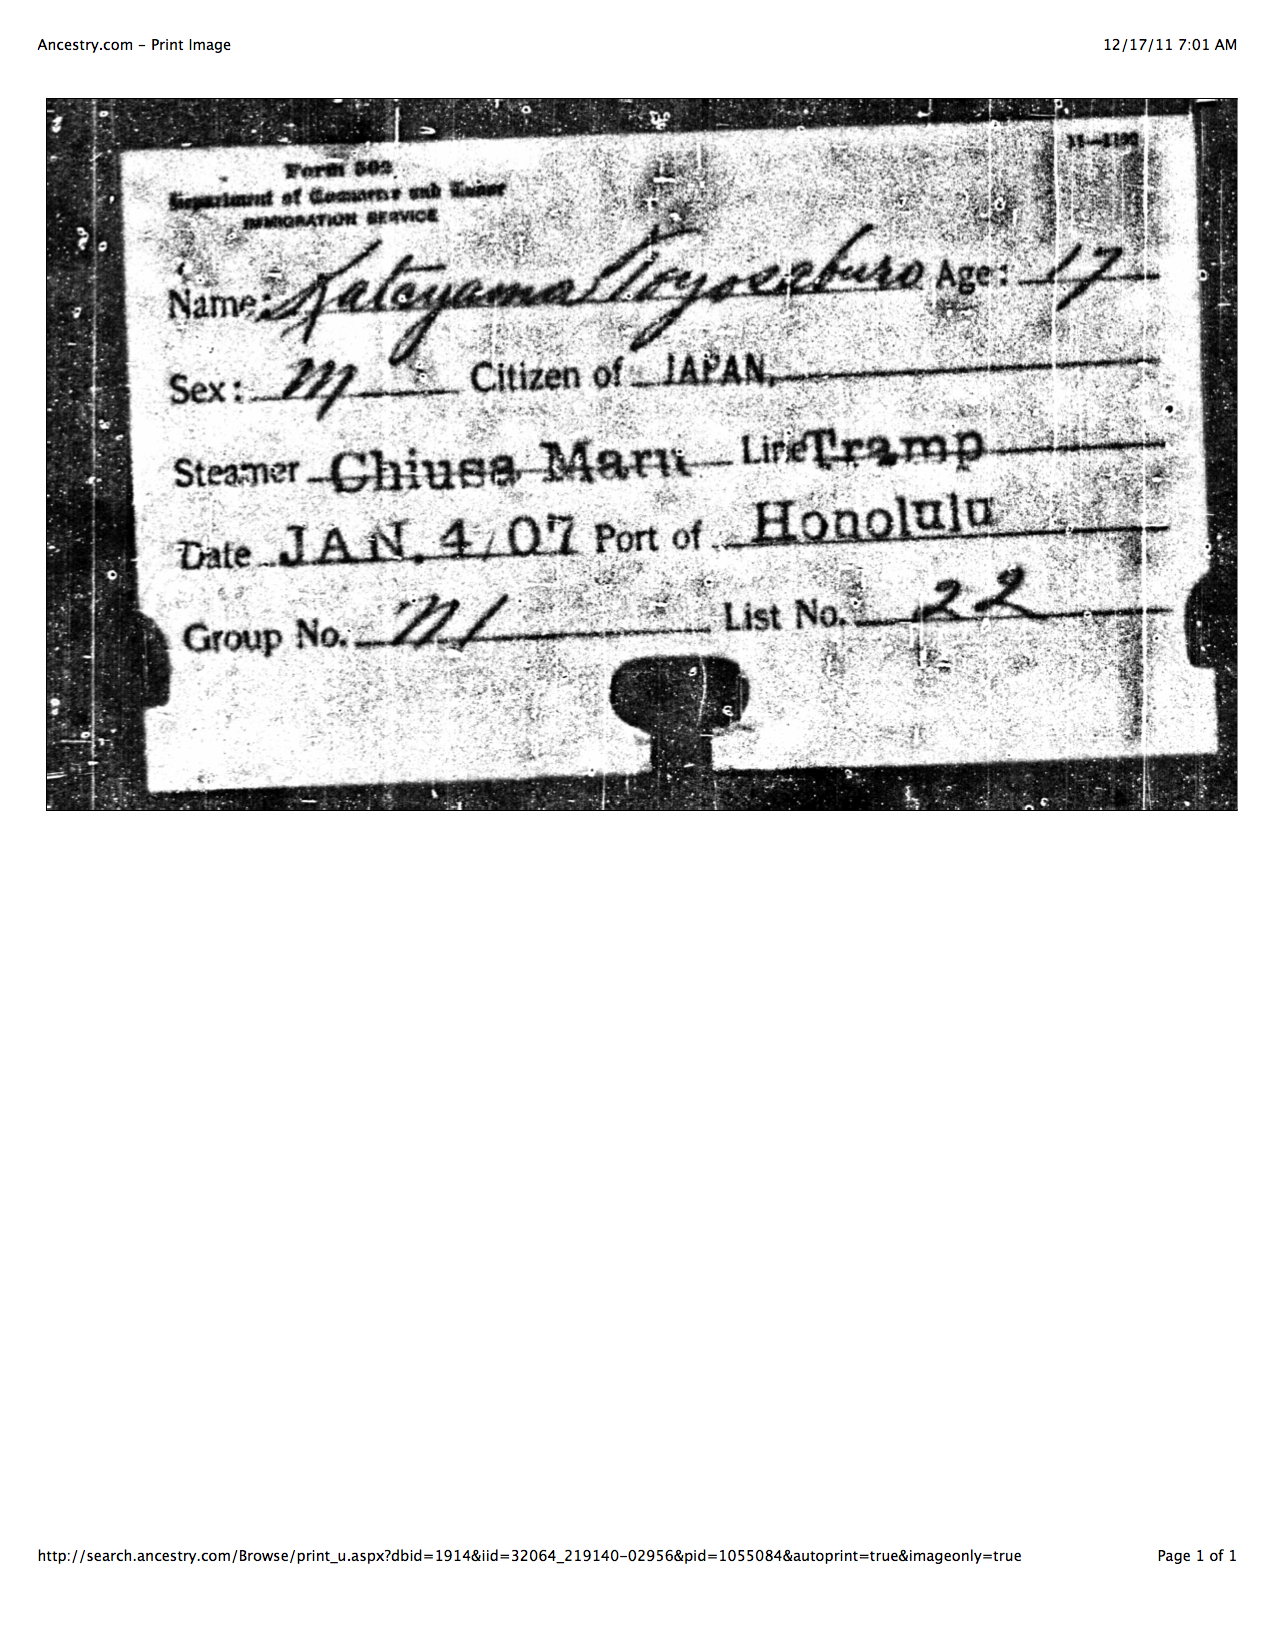 Ancestry.com – Print Image 12/17/11 7:01 AM
Form 502
Department of Commerce and Labor
IMMIGRATION SERVICE
Name: Katayama Toyosaburo Age: 17
Sex: M Citizen of JAPAN.
Steamer Chiusa Maru Line Tramp
Date JAN. 4, 07 Port of Honolulu
Group No. M1 List No. 22
http://search.ancestry.com/Browse/print_u.aspx?dbid=1914&iid=32064_219140-02956&pid=1055084&autoprint=true&imageonly=true Page 1 of 1